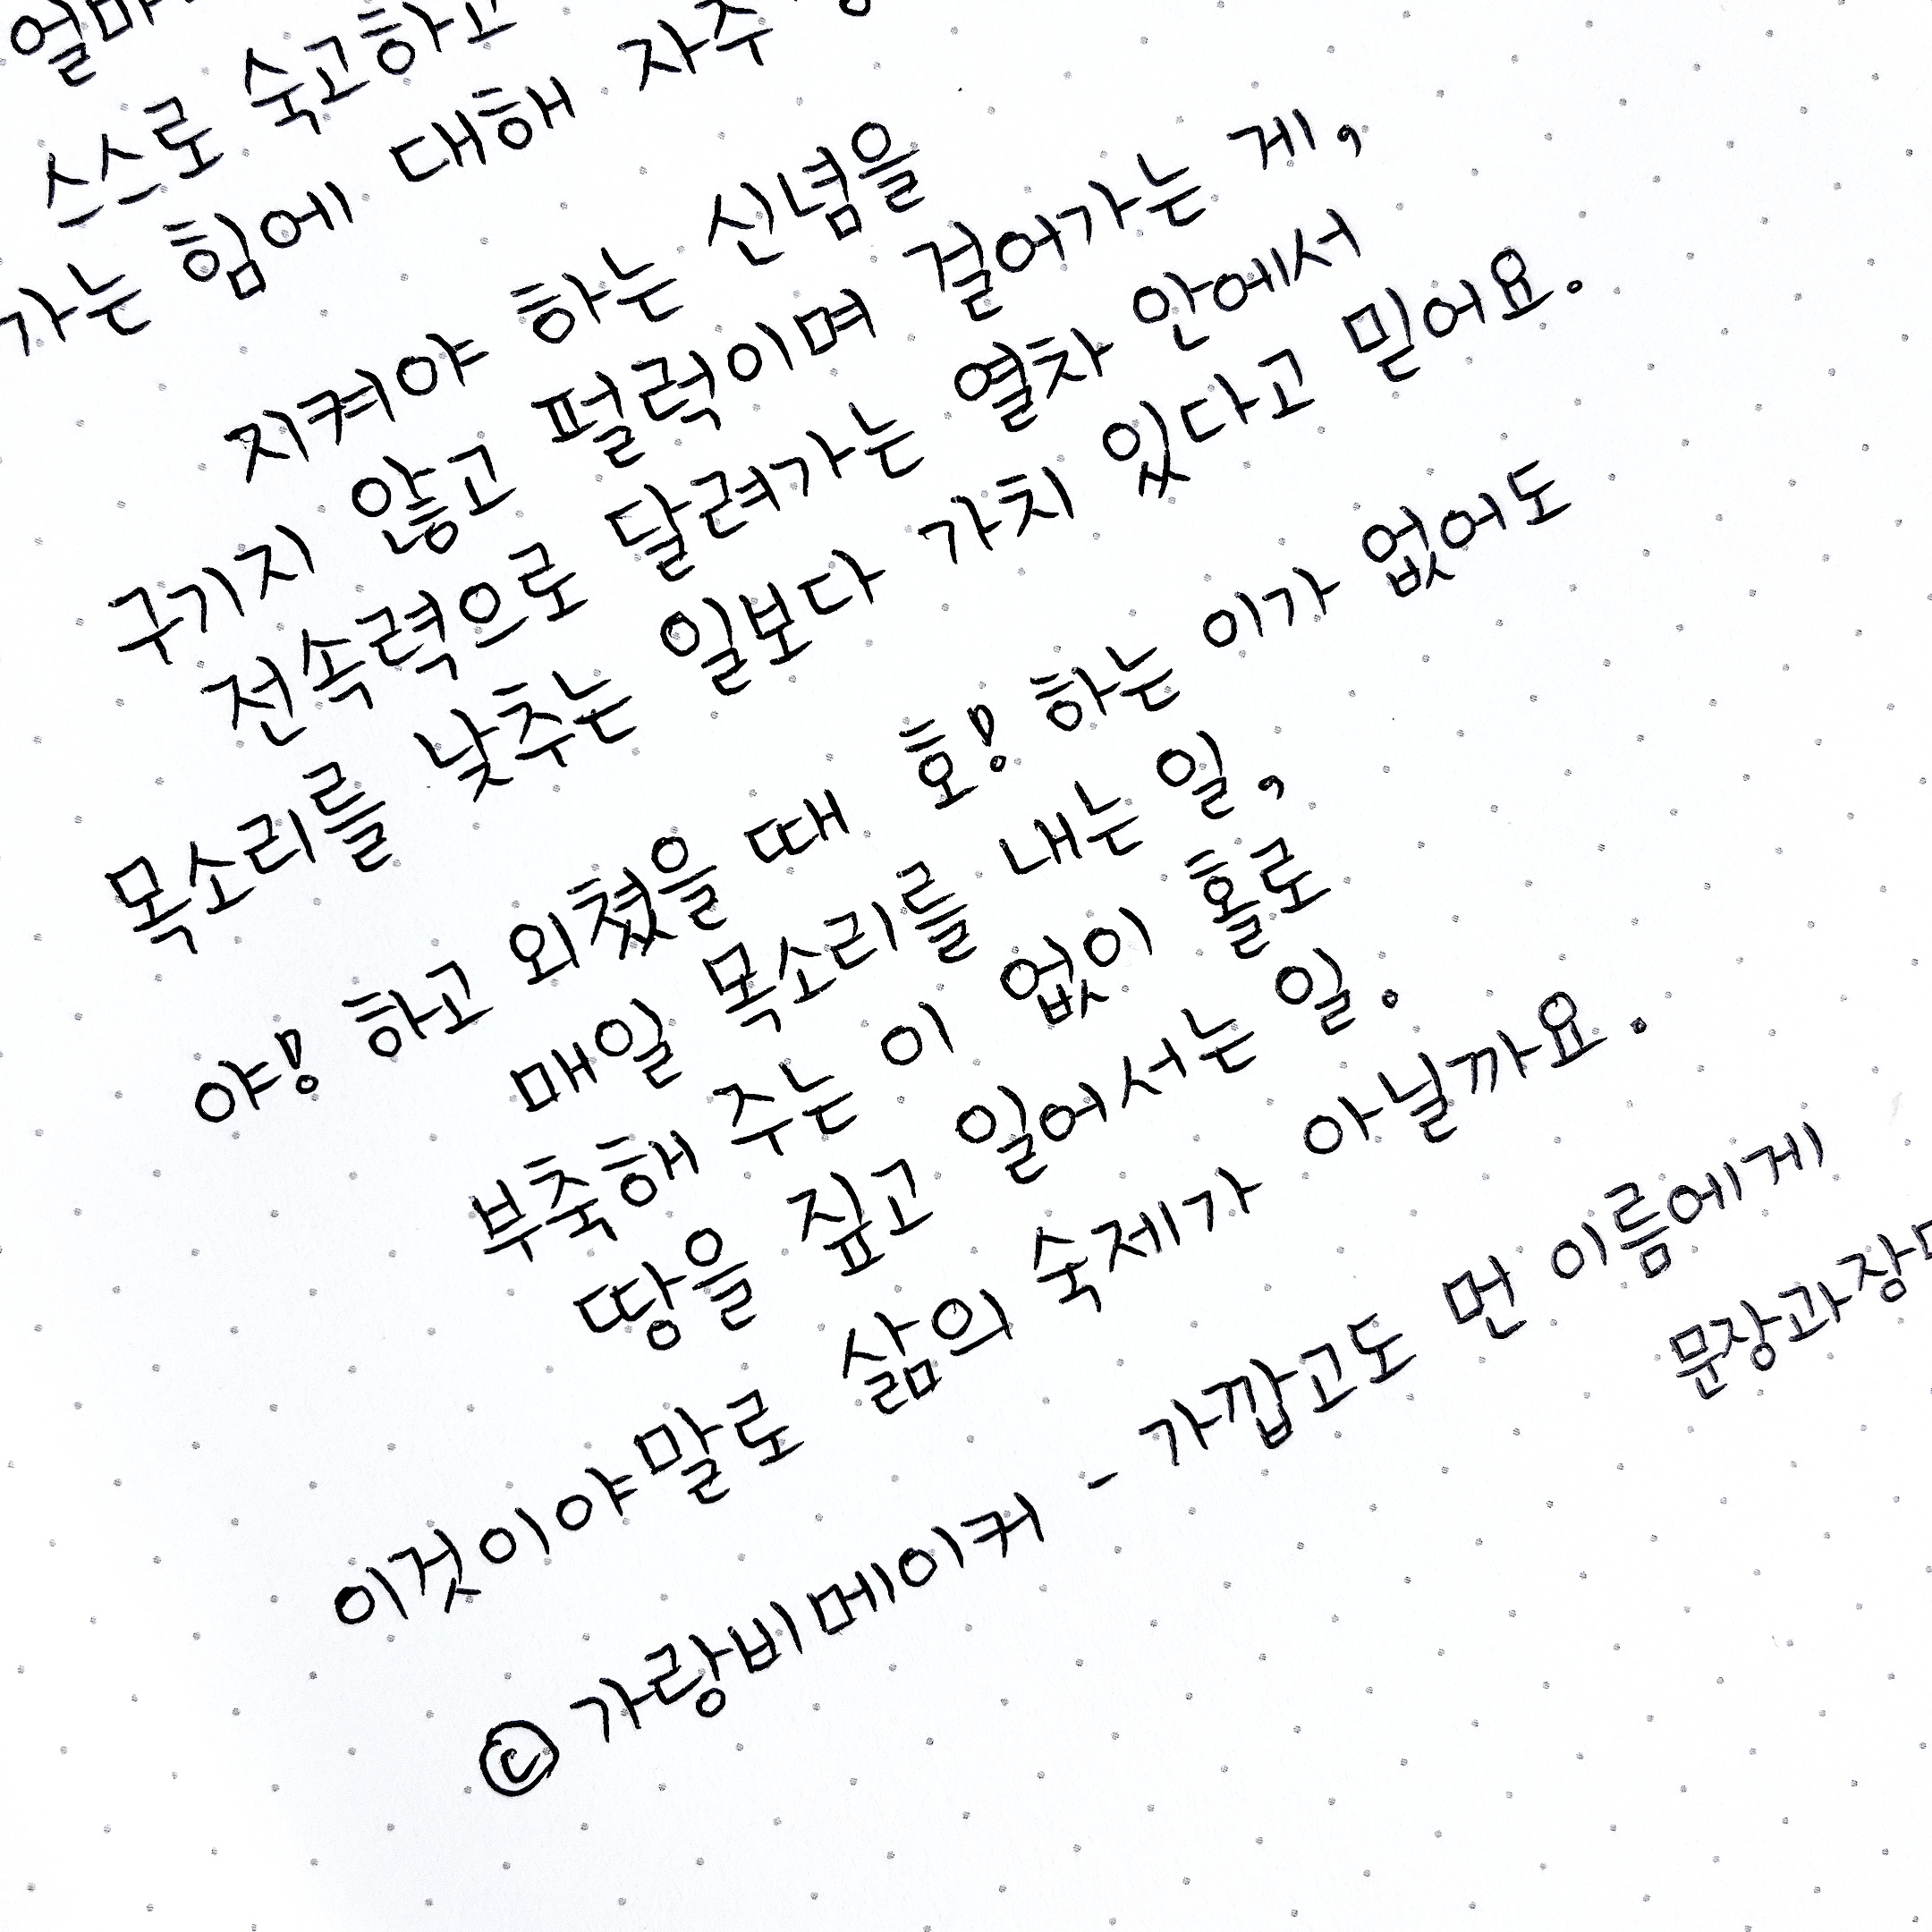 스스로 숙고하고
가는 힘에 대해 자주
지켜야 하는 신념을
구기지 않고 펄럭이며 걸어가는 게,
전속력으로 달려가는 열차 안에서
목소리를 낮추는 일보다 가치 있다고 믿어요.
야! 하고 외쳤을 때 호! 하는 이가 없어도
매일 목소리를 내는 일,
부축해 주는 이 없이 홀로
땅을 짚고 일어서는 일.
이것이야말로 삶의 숙제가 아닐까요.
©가랑비메이커 - 가깝고도 먼 이름에게
문장과장